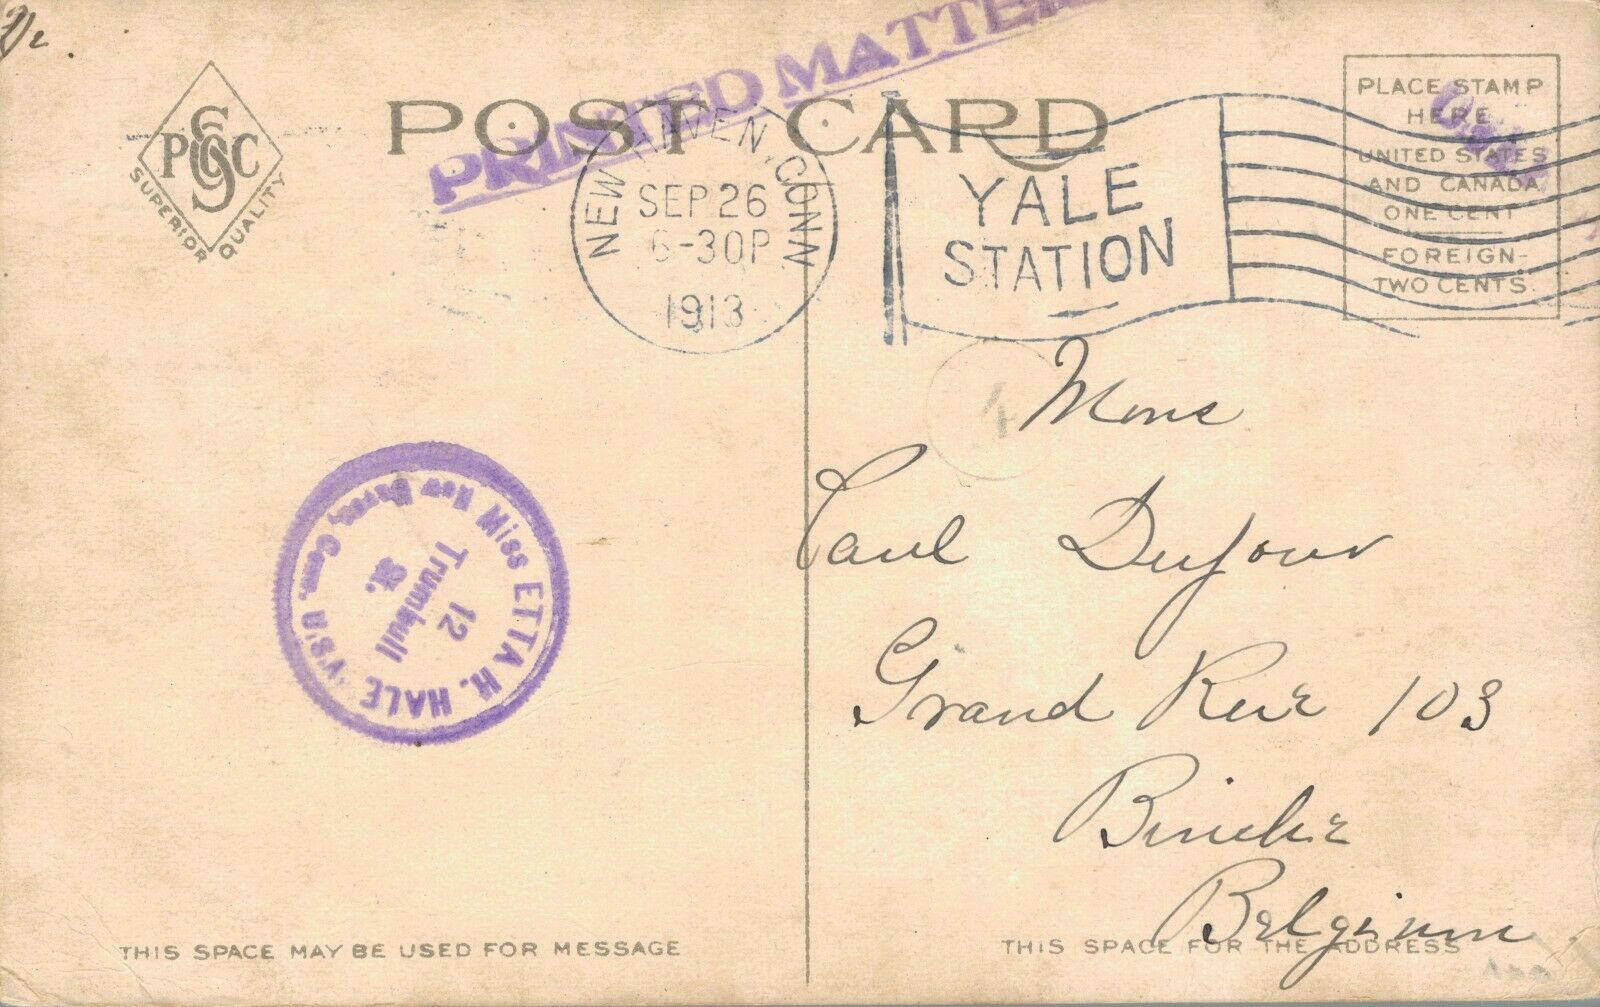 PRINTED MATTER
POST CARD
PSCC
SUPERIOR QUALITY
NEW HAVEN, CONN
SEP 26
6-30P
1913
YALE
STATION
PLACE STAMP
HERE
UNITED STATES
AND CANADA
ONE CENT
FOREIGN-
TWO CENTS.
Miss ETTA H. HALE
12
Trumbull
St.
New Haven, Conn. U.S.A.
Mons
Paul Dufour
Grand Rue 103
Binche
Belgium
THIS SPACE MAY BE USED FOR MESSAGE
THIS SPACE FOR THE ADDRESS